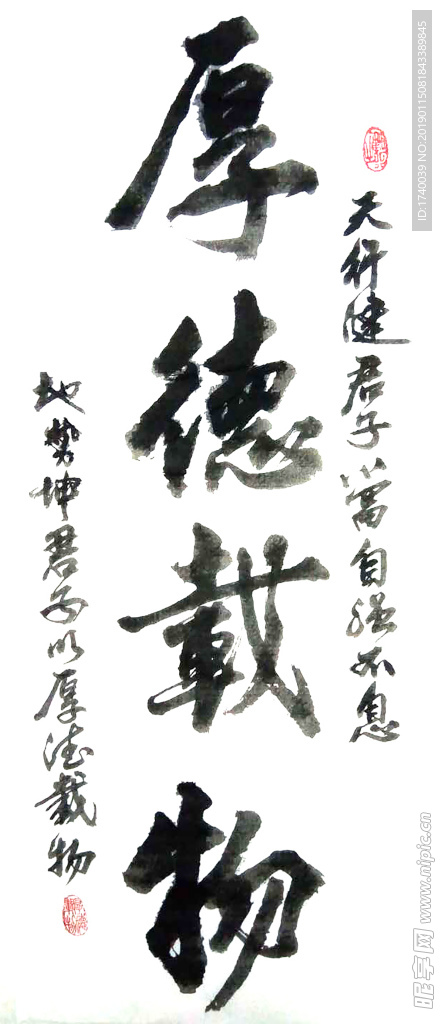 天行健君子以當自强不息
厚德載物
地勢坤君子以厚德載物
ID:1740039 NO:20190115081843389845
昵享网 www.nipic.cn